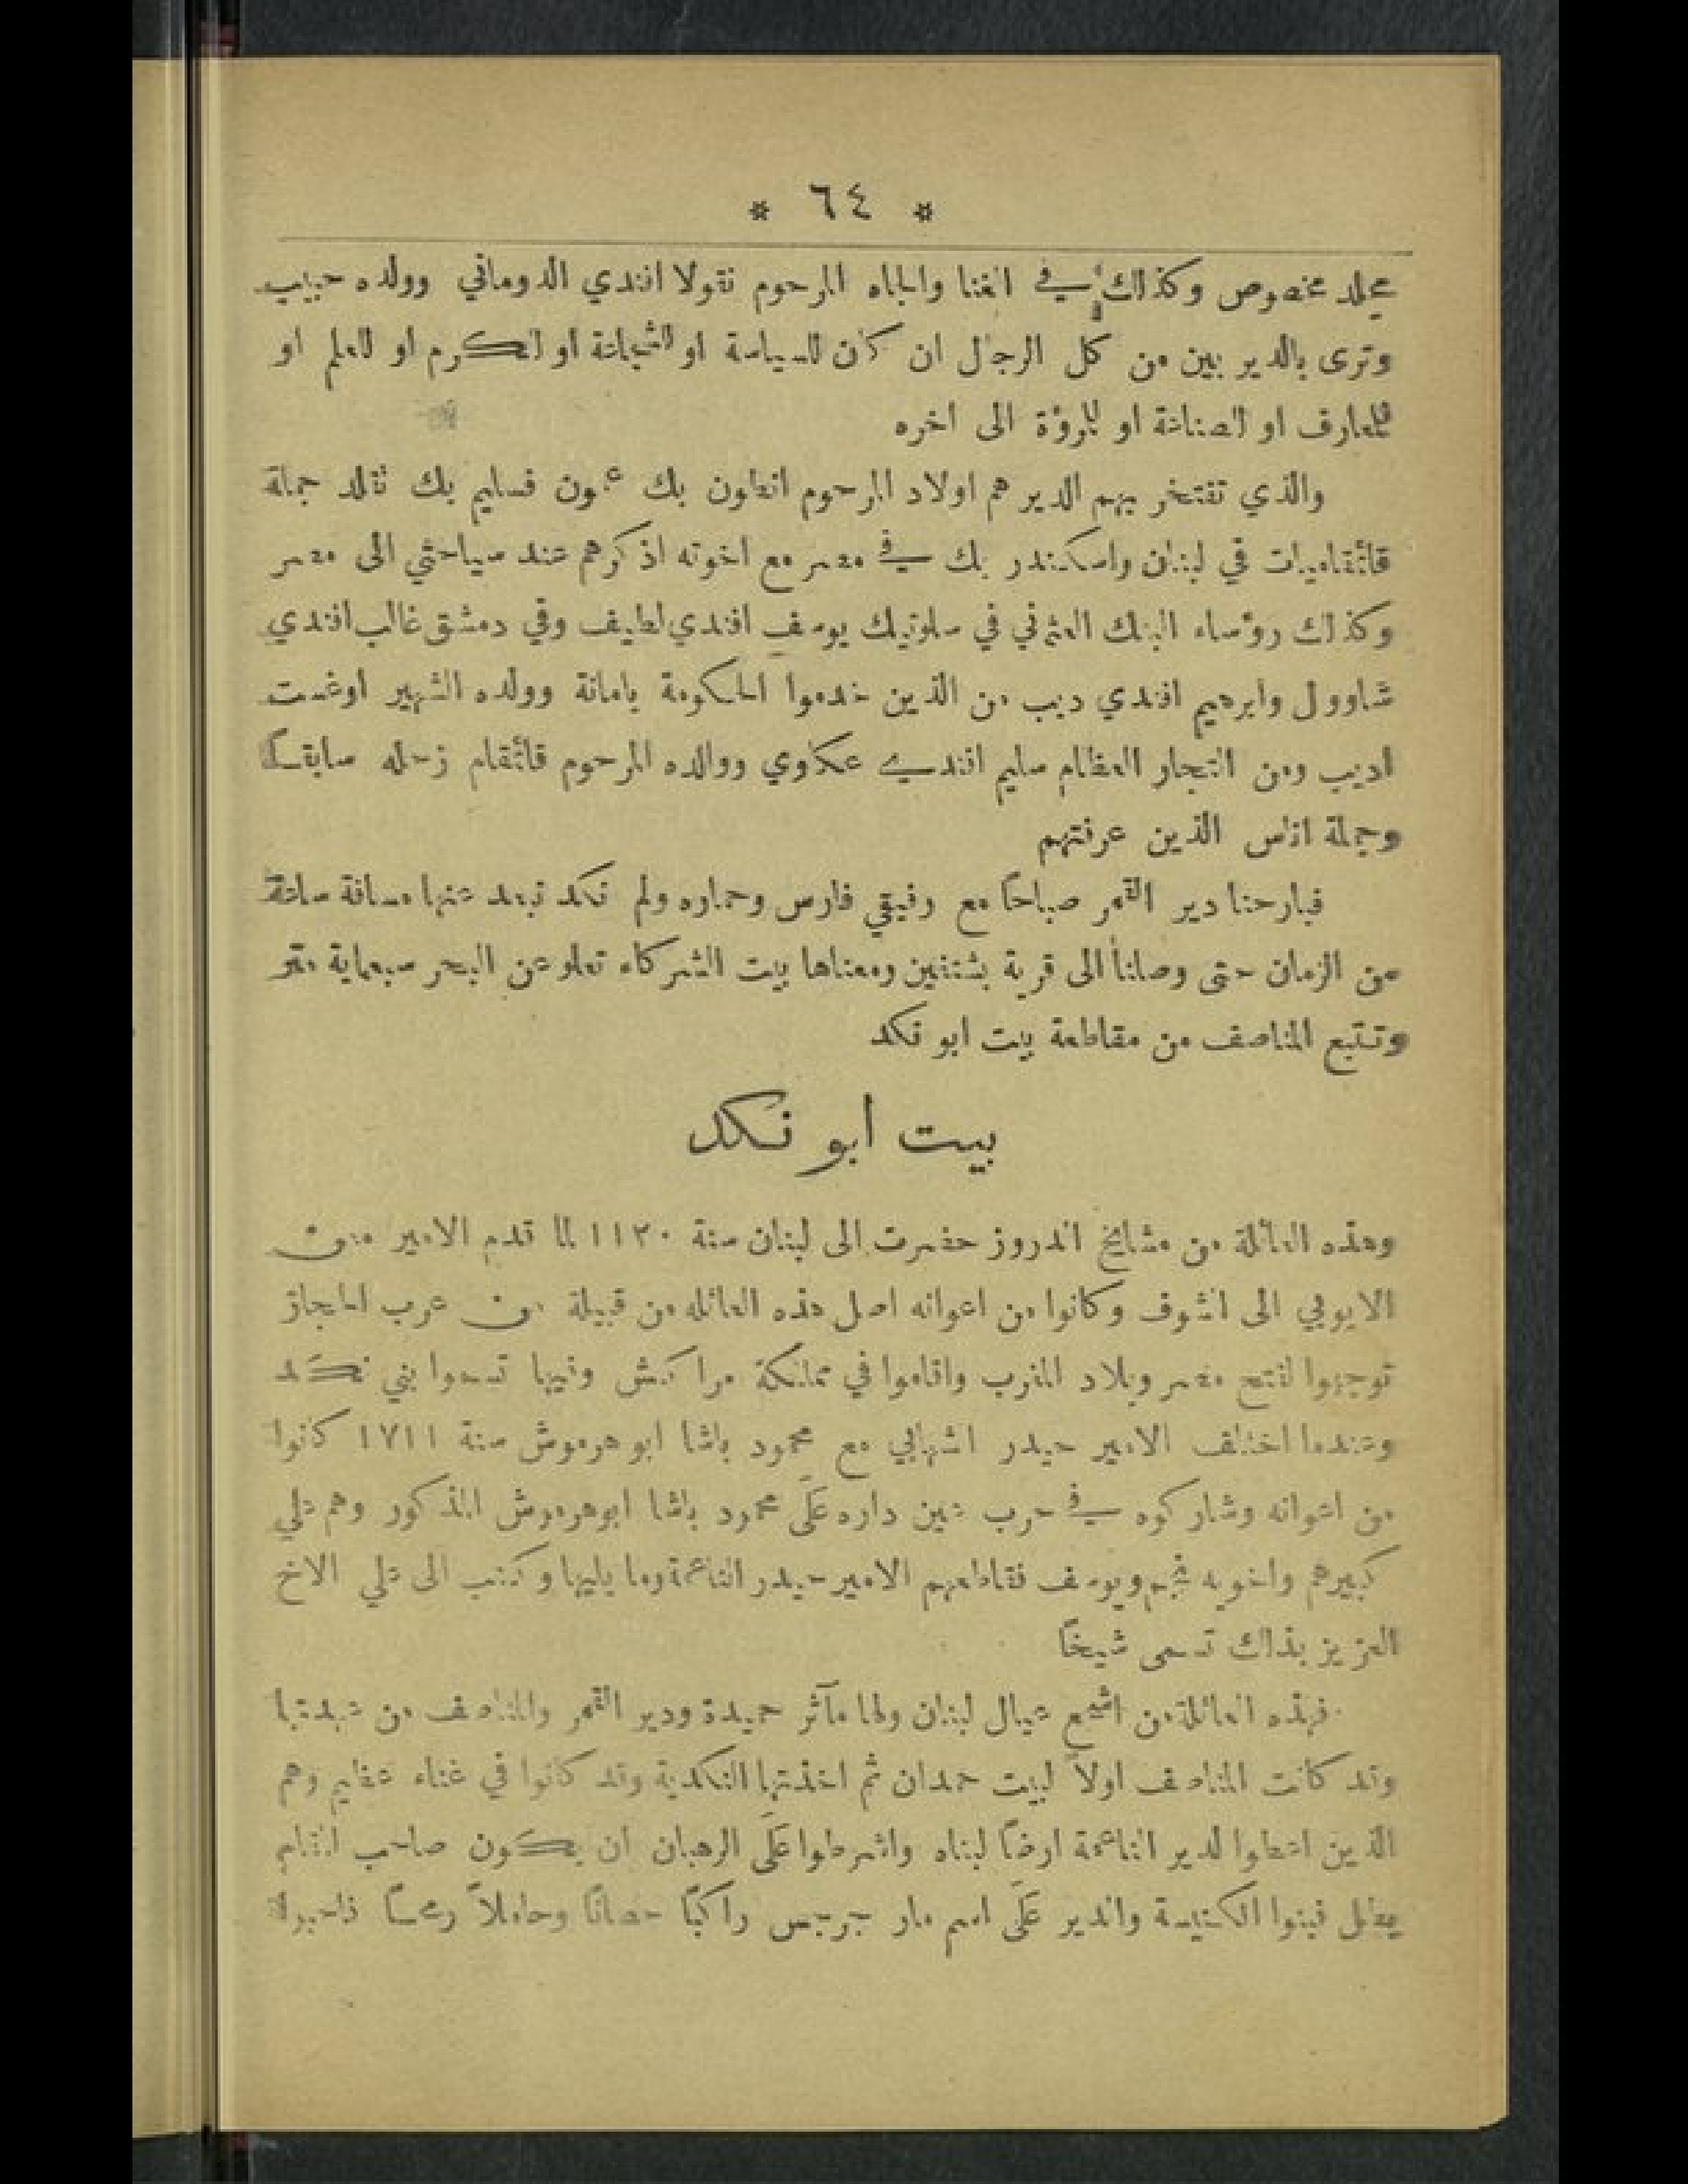 * ٦٤ *
بمجلد مخصوص وكذلك في الغنا والجاه المرحوم نقولا افندي الدوماني وولده حبيب
وترى بالدير بين من كل الرجال ان كان للسياسة او للشجاعة او للكرم او للعلم او
للمعارف او الصناعة او للمروؤة الى اخره
والذي تفتخر بهم الدير هم اولاد المرحوم انطون بك عمون فسليم بك تقلد جملة
قائمقاميات في لبنان واسكندر بك في مصر مع اخوته اذكرهم عند سياحتي الى مصر
وكذلك روؤساء البنك العثماني في سلونيك يوسف افندي لطيف وفي دمشق غالب افندي
شاوول وابرهيم افندي ديب من الذين خدموا الحكومة بامانة وولده الشهير اوغست
اديب ومن التجار العظام سليم افندي عكاوي ووالده المرحوم قائمقام زحله سابقاً
وجملة اناس الذين عرفتهم
فبارحنا دير القمر صباحاً مع رفيقي فارس وحماره ولم نكد نبعد عنها مسافة ساعة
من الزمان حتى وصلنا الى قرية بشتفين ومعناها بيت الشركاء تعلو عن البحر سبعماية متر
وتتبع المناصف من مقاطعة بيت ابو نكد
بيت ابو نكد
وهذه العائلة من مشايخ الدروز حضرت الى لبنان سنة ١١٢٠ لما قدم الامير معن
الايوبي الى الشوف وكانوا من اعوانه اصل هذه العائله من قبيلة من عرب الحجاز
توجهوا لفتح مصر وبلاد المغرب واقاموا في مملكة مراكش وفيها تسموا بني نكد
وعندما اختلف الامير حيدر الشهابي مع محمود باشا ابو هرموش سنة ١٧١١ كانوا
من اعوانه وشاركوه في حرب عين داره عَلَى محمود باشا ابوهرموش المذكور وهم علي
كبيرهم واخويه نجم ويوسف فقاطعهم الامير حيدر الناعمة وما يليها وكتب الى علي الاخ
العزيز بذلك تسمى شيخاً
فهذه العائلة من اشجع عيال لبنان ولها مآثر حميدة ودير القمر والمناصف من عهدتها
وقد كانت المناصف اولاً لبيت حمدان ثم اخذتها النكدية وقد كانوا في غناء عظيم وهم
الذين اعطوا لدير الناعمة ارضاً لبناه واشرطوا عَلَى الرهبان ان يكون صاحب المقام
بطل فبنوا الكنيسة والدير عَلَى اسم مار جرجس راكباً حصاناً وحاملاً رمحاً